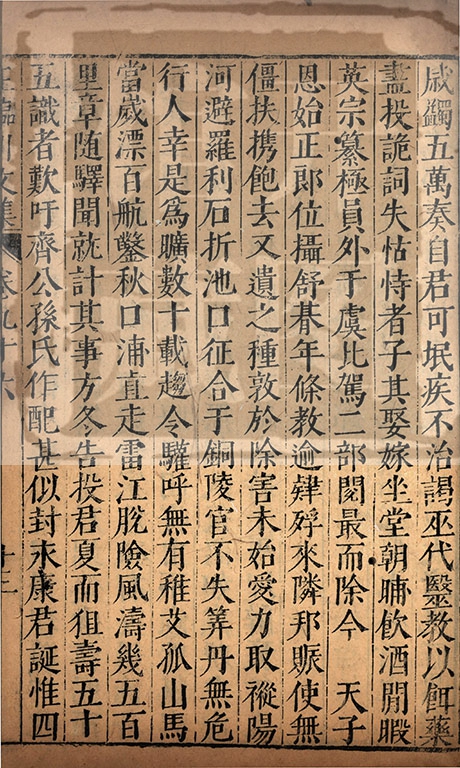 歲蠲五萬奏自君可氓疾不治謁巫代毉教以餌藥
盡投詭詞失怙恃者子其娶嫁坐堂朝晡飲酒閒暇
英宗纂極員外于虞比駕二部閱最而除今 天子
恩始正郎位攝舒朞年條教逾肄殍來隣邦賑使無
僵扶携飽去又遺之種敦於除害未始愛力取樅陽
河避羅利石折池口征合于銅陵官不失筭舟無危
行人幸是爲曠數十載趨令驩呼無有稚艾孤山馬
當歲漂百航鑿秋口浦直走雷江脫險風濤幾五百
里章隨驛聞就計其事方冬告投君夏而徂壽五十
五識者歎吁齊公孫氏作配甚似封永康君誕惟四
臨川文集 卷九十六